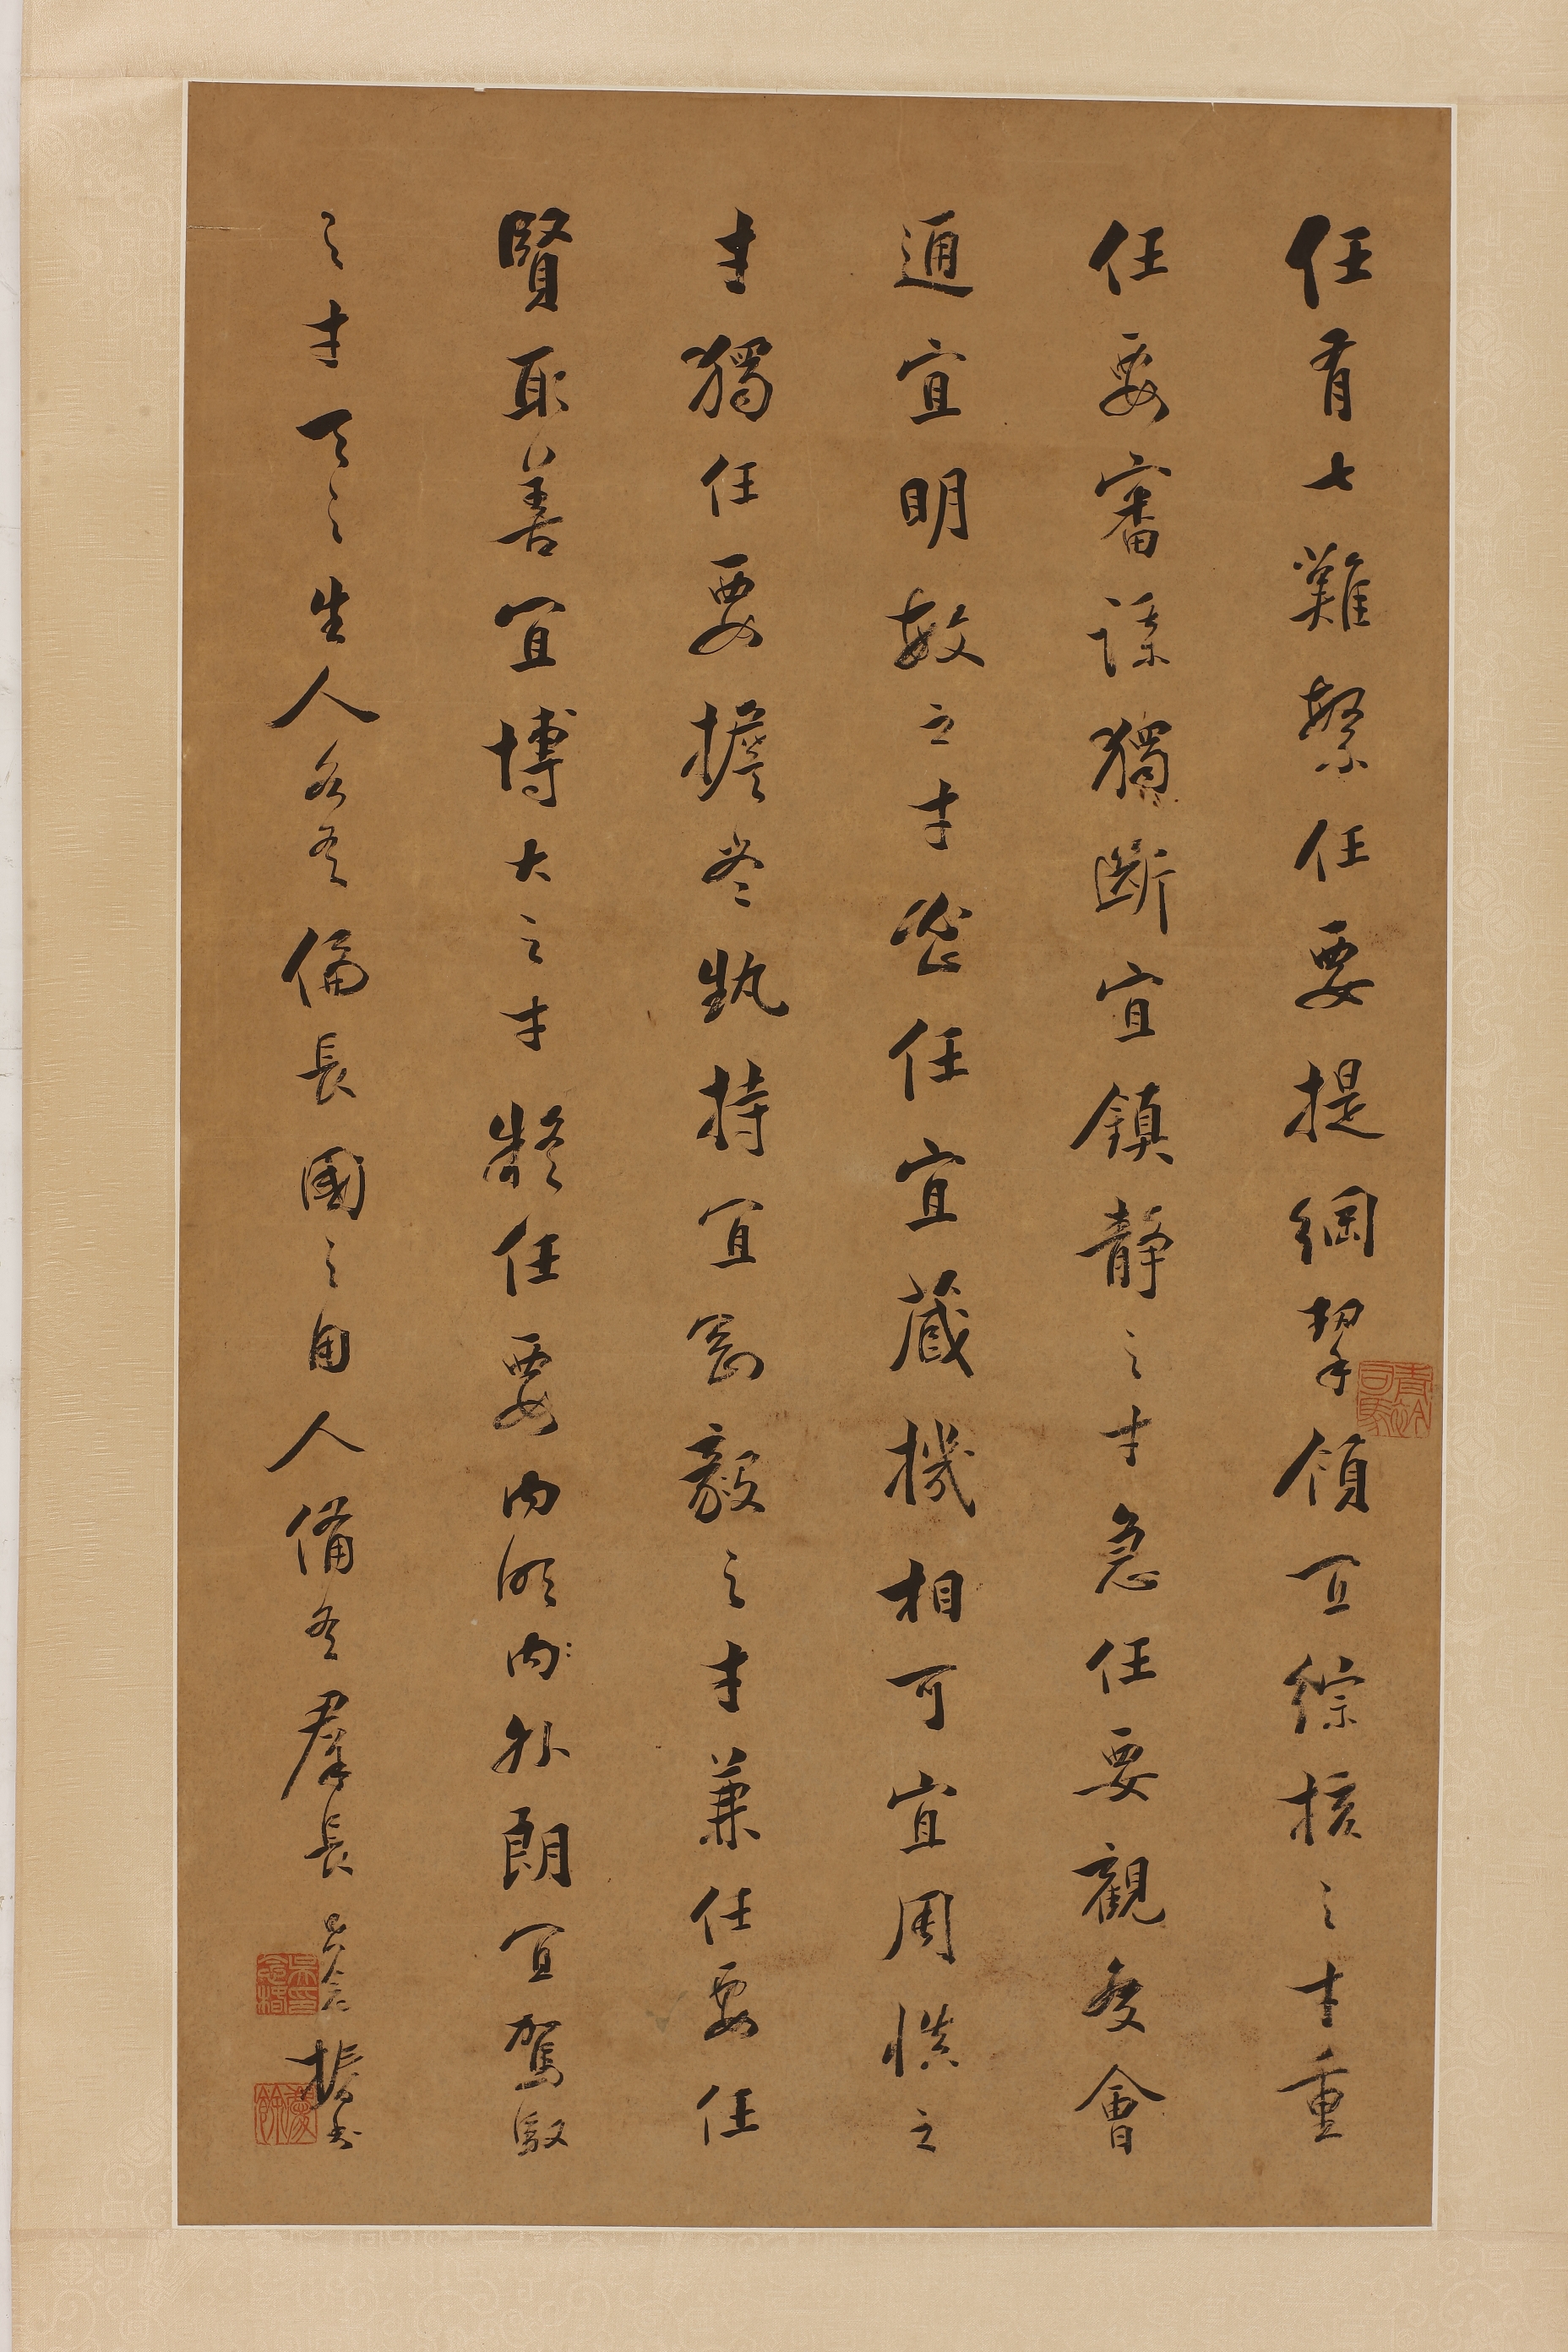 任有七難繁任要提綱挈領宜綜核之才重
任要審謀獨斷宜鎮靜之才急任要觀變會
通宜明敏之才密任宜藏機相可宜周慎之
才獨任要擔當執持宜剛毅之才兼任要任
賢取善宜博大之才疑任要內明內外朗宜駕馭
之才天之生人各有偏長國之用人備有羣長